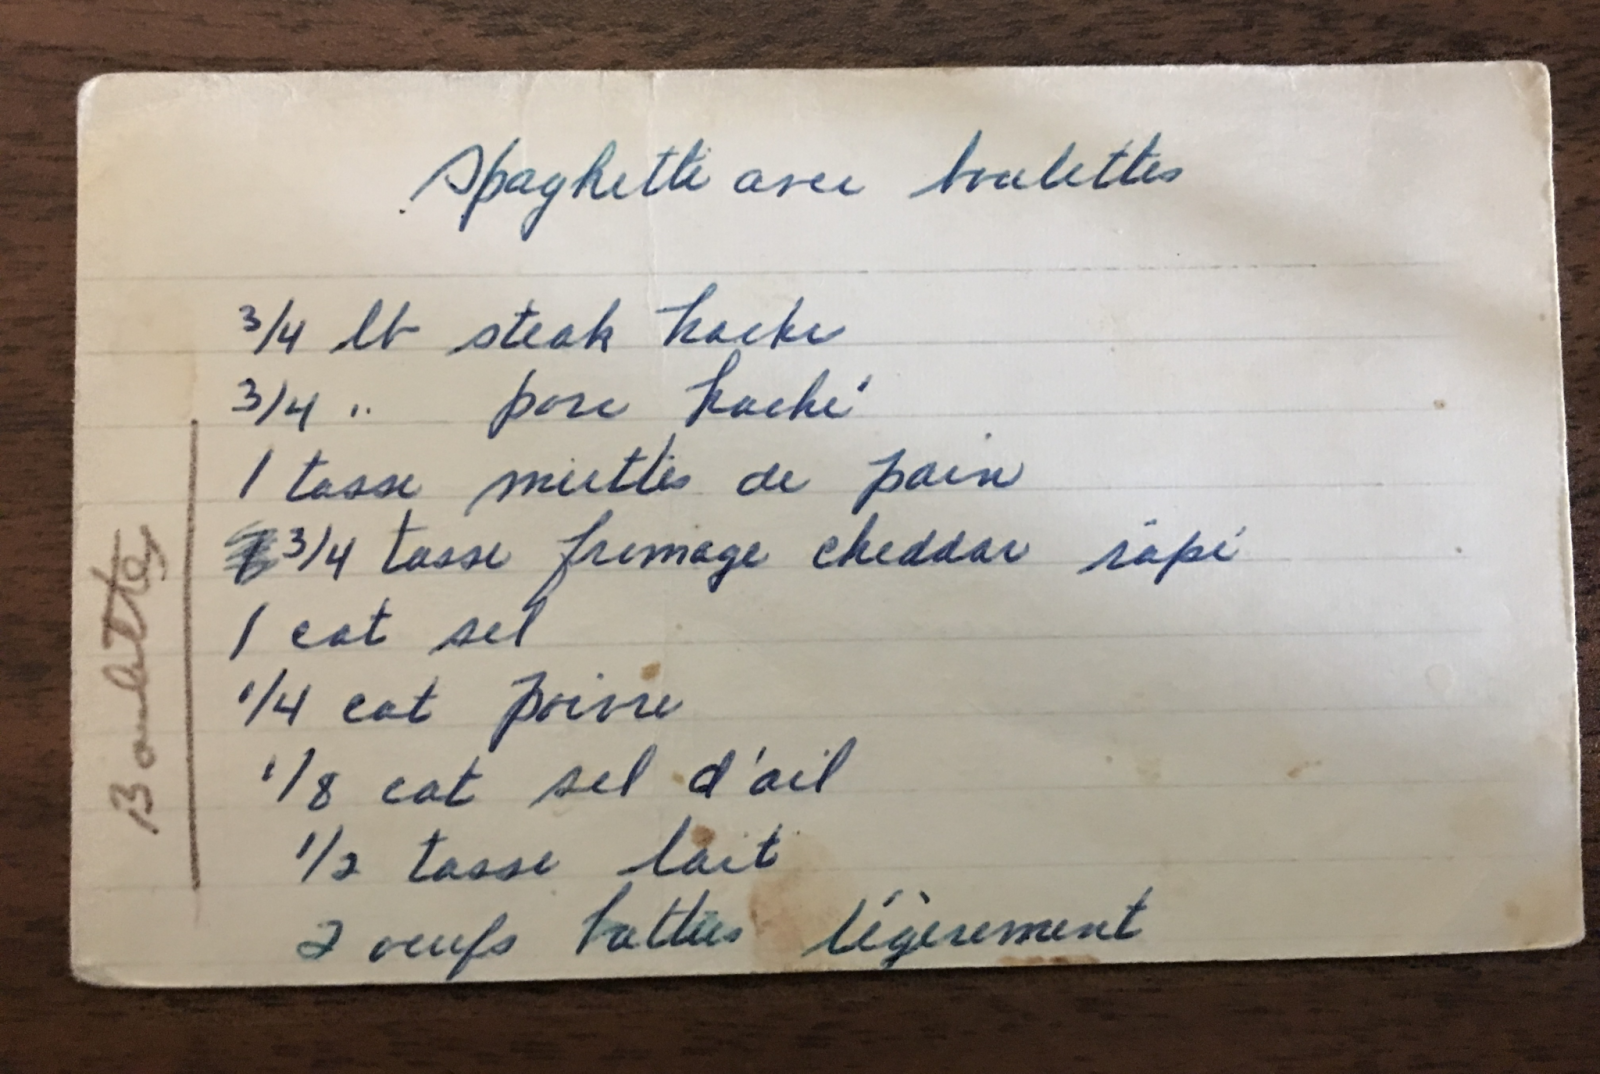 Spaghetti avec boulettes
3/4 lb steak haché
3/4 " porc haché
1 tasse miettes de pain
3/4 tasse fromage cheddar râpé
1 cat sel
1/4 cat poivre
1/8 cat sel d'ail
1/2 tasse lait
2 oeufs battus légèrement
Boulettes